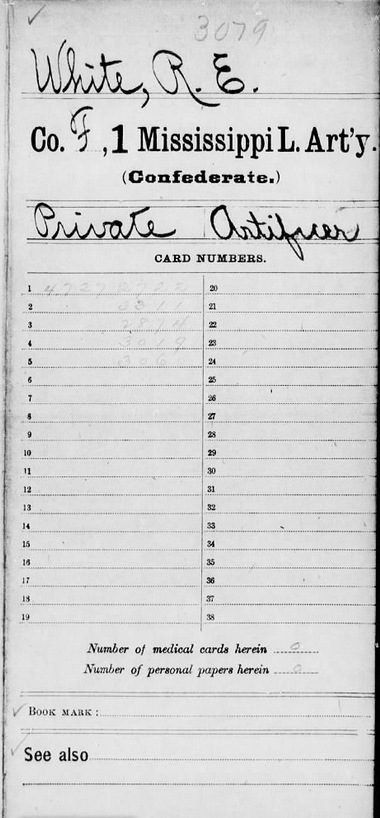 3079
White, R. E.
Co. F, 1 Mississippi L. Art'y.
(Confederate.)
Private Artificer
CARD NUMBERS.
1 20
2 3311 21
3 2874 22
4 3019 23
5 306 24
6 25
7 26
8 27
9 28
10 29
11 30
12 31
13 32
14 33
15 34
16 35
17 36
18 37
19 38
Number of medical cards herein 0
Number of personal papers herein 0
BOOK MARK:
See also